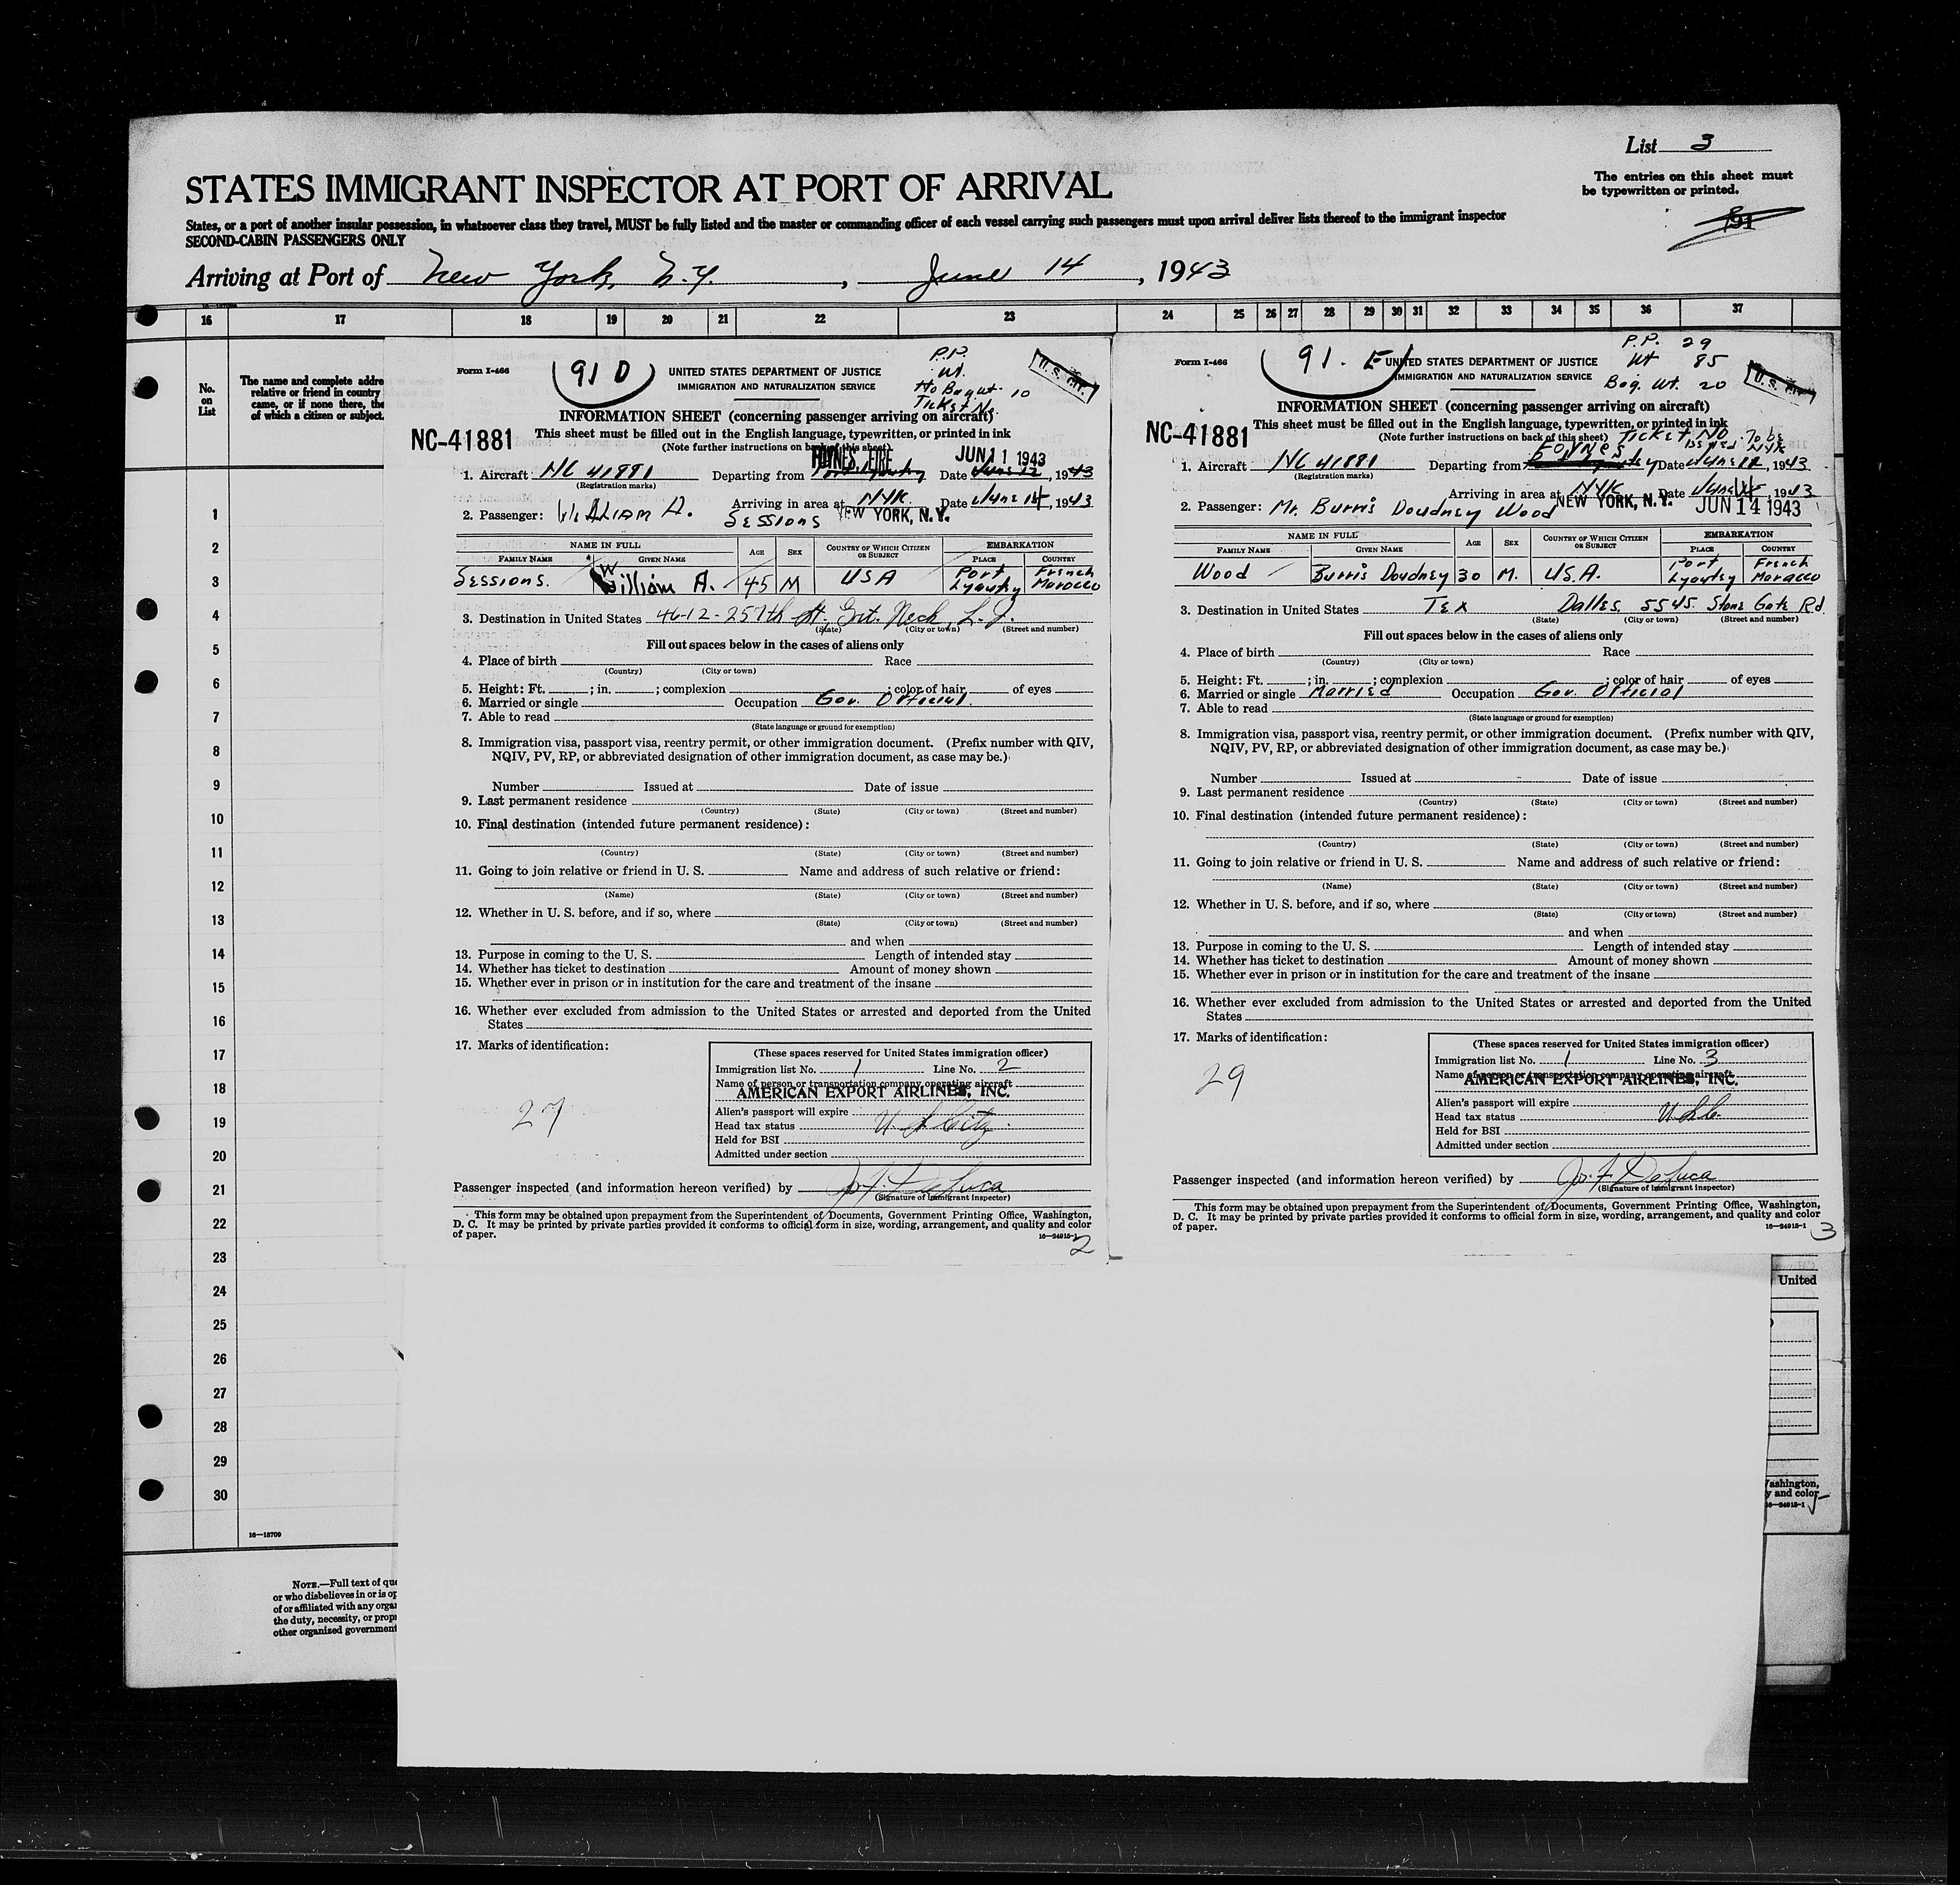 List 3
The entries on this sheet must
be typewritten or printed.
STATES IMMIGRANT INSPECTOR AT PORT OF ARRIVAL
States, or a port of another insular possession, in whatsoever class they travel, MUST be fully listed and the master or commanding officer of each vessel carrying such passengers must upon arrival deliver lists thereof to the immigrant inspector
SECOND-CABIN PASSENGERS ONLY
91
Arriving at Port of New York, N.Y. , June 14 , 1943
16 17 18 19 20 21 22 23 24 25 26 27 28 29 30 31 32 33 34 35 36 37
No.
on
List
The name and complete addre
relative or friend in country
came, or if none there, the
of which a citizen or subject.
1
2
3
4
5
6
7
8
9
10
11
12
13
14
15
16
17
18
19
20
21
22
23
24
25
26
27
28
29
30
16—18709
NOTE.—Full text of que
or who disbelieves in or is op
of or affiliated with any organ
the duty, necessity, or propr
other organized government
Form I-466
91 D
UNITED STATES DEPARTMENT OF JUSTICE
IMMIGRATION AND NATURALIZATION SERVICE
P.P.
Wt.
Ho Bag wt. 10
Ticket No.
INFORMATION SHEET (concerning passenger arriving on aircraft)
NC-41881
This sheet must be filled out in the English language, typewritten, or printed in ink
(Note further instructions on back of this sheet)
FOYNES, EIRE JUN 11 1943
1. Aircraft NC 41881 Departing from Port Lyautey Date June 12, 1943
(Registration marks)
Arriving in area at NYK Date June 14, 1943
2. Passenger: William A. Sessions NEW YORK, N.Y.
NAME IN FULL AGE SEX COUNTRY OF WHICH CITIZEN OR SUBJECT EMBARKATION
FAMILY NAME GIVEN NAME PLACE COUNTRY
Sessions. William A. 45 M USA Port Lyautey French Morocco
3. Destination in United States 46-12-257th St, Grt. Neck, L.I.
(State) (City or town) (Street and number)
Fill out spaces below in the cases of aliens only
4. Place of birth Race
(Country) (City or town)
5. Height: Ft. ; in. ; complexion ; color of hair of eyes
6. Married or single Occupation Gov. Official.
7. Able to read
(State language or ground for exemption)
8. Immigration visa, passport visa, reentry permit, or other immigration document. (Prefix number with QIV,
NQIV, PV, RP, or abbreviated designation of other immigration document, as case may be.)
Number Issued at Date of issue
9. Last permanent residence
(Country) (State) (City or town) (Street and number)
10. Final destination (intended future permanent residence):
(Country) (State) (City or town) (Street and number)
11. Going to join relative or friend in U. S. Name and address of such relative or friend:
(Name) (State) (City or town) (Street and number)
12. Whether in U. S. before, and if so, where
(State) (City or town) (Street and number)
and when
13. Purpose in coming to the U. S. Length of intended stay
14. Whether has ticket to destination Amount of money shown
15. Whether ever in prison or in institution for the care and treatment of the insane
16. Whether ever excluded from admission to the United States or arrested and deported from the United
States
17. Marks of identification:
27
(These spaces reserved for United States immigration officer)
Immigration list No. 1 Line No. 2
Name of person or transportation company operating aircraft
AMERICAN EXPORT AIRLINES, INC.
Alien's passport will expire
Head tax status U.S. Citz.
Held for BSI
Admitted under section
Passenger inspected (and information hereon verified) by Jos. F. DeLuca
(Signature of immigrant inspector)
This form may be obtained upon prepayment from the Superintendent of Documents, Government Printing Office, Washington,
D. C. It may be printed by private parties provided it conforms to official form in size, wording, arrangement, and quality and color
of paper.
16—24915-1
2
Form I-466
91. E
UNITED STATES DEPARTMENT OF JUSTICE
IMMIGRATION AND NATURALIZATION SERVICE
P.P. 29
Wt 85
Bag. Wt. 20
INFORMATION SHEET (concerning passenger arriving on aircraft)
NC-41881
This sheet must be filled out in the English language, typewritten, or printed in ink
(Note further instructions on back of this sheet) Ticket No. To be
Issued NYK
Foynes
1. Aircraft NC 41881 Departing from Date June 12, 1943
(Registration marks)
Arriving in area at NYK Date June 14, 1943
2. Passenger: Mr. Burris Doudney Wood NEW YORK, N.Y. JUN 14 1943
NAME IN FULL AGE SEX COUNTRY OF WHICH CITIZEN OR SUBJECT EMBARKATION
FAMILY NAME GIVEN NAME PLACE COUNTRY
Wood Burris Doudney 30 M. U.S.A. Port Lyautey French Morocco
3. Destination in United States Tex Dalles 5545 Stone Gate Rd
(State) (City or town) (Street and number)
Fill out spaces below in the cases of aliens only
4. Place of birth Race
(Country) (City or town)
5. Height: Ft. ; in. ; complexion ; color of hair of eyes
6. Married or single Married Occupation Gov. Official
7. Able to read
(State language or ground for exemption)
8. Immigration visa, passport visa, reentry permit, or other immigration document. (Prefix number with QIV,
NQIV, PV, RP, or abbreviated designation of other immigration document, as case may be.)
Number Issued at Date of issue
9. Last permanent residence
(Country) (State) (City or town) (Street and number)
10. Final destination (intended future permanent residence):
(Country) (State) (City or town) (Street and number)
11. Going to join relative or friend in U. S. Name and address of such relative or friend:
(Name) (State) (City or town) (Street and number)
12. Whether in U. S. before, and if so, where
(State) (City or town) (Street and number)
and when
13. Purpose in coming to the U. S. Length of intended stay
14. Whether has ticket to destination Amount of money shown
15. Whether ever in prison or in institution for the care and treatment of the insane
16. Whether ever excluded from admission to the United States or arrested and deported from the United
States
17. Marks of identification:
29
(These spaces reserved for United States immigration officer)
Immigration list No. 1 Line No. 3
Name of person or transportation company operating aircraft
AMERICAN EXPORT AIRLINES, INC.
Alien's passport will expire
Head tax status
Held for BSI
Admitted under section
Passenger inspected (and information hereon verified) by Jos. F. DeLuca
(Signature of immigrant inspector)
This form may be obtained upon prepayment from the Superintendent of Documents, Government Printing Office, Washington,
D. C. It may be printed by private parties provided it conforms to official form in size, wording, arrangement, and quality and color
of paper.
16—24915-1
3
United
Washington,
y and color
16—24915-1